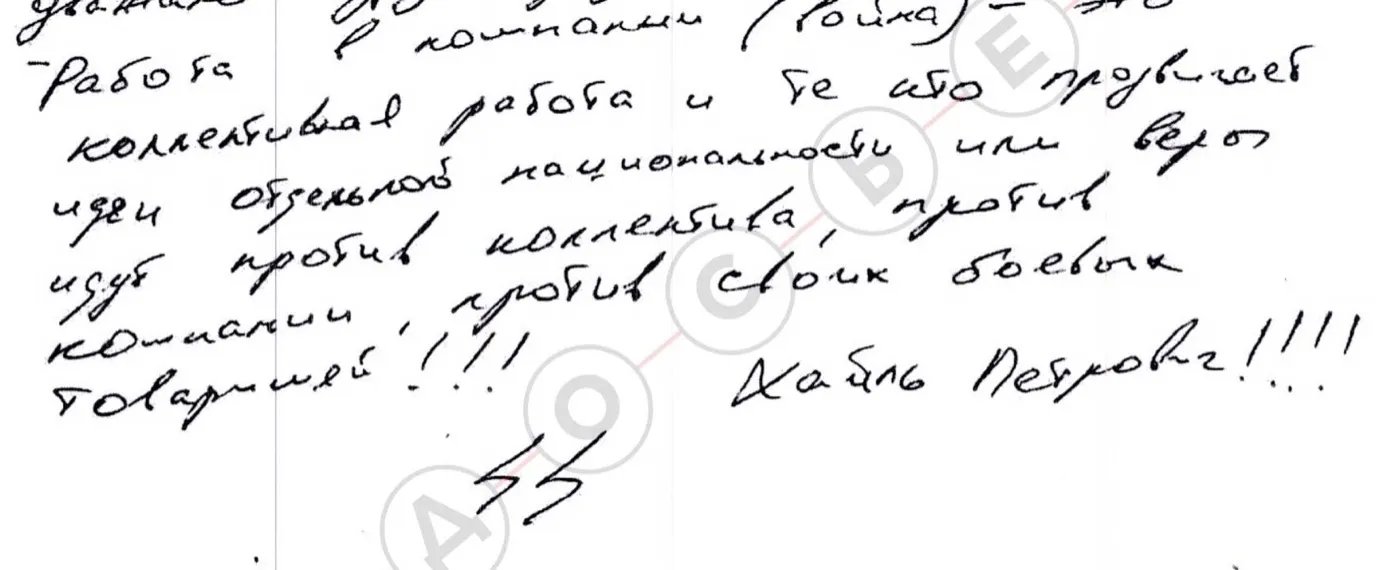 -Работа в компании (война) - это
коллективная работа и те кто продвигает
идеи отдельной национальности или веры
идут против коллектива, против
компании, против своих боевых
товарищей!!!
Хайль Петрович!!!!
ϟϟ
ДОСЬЕ